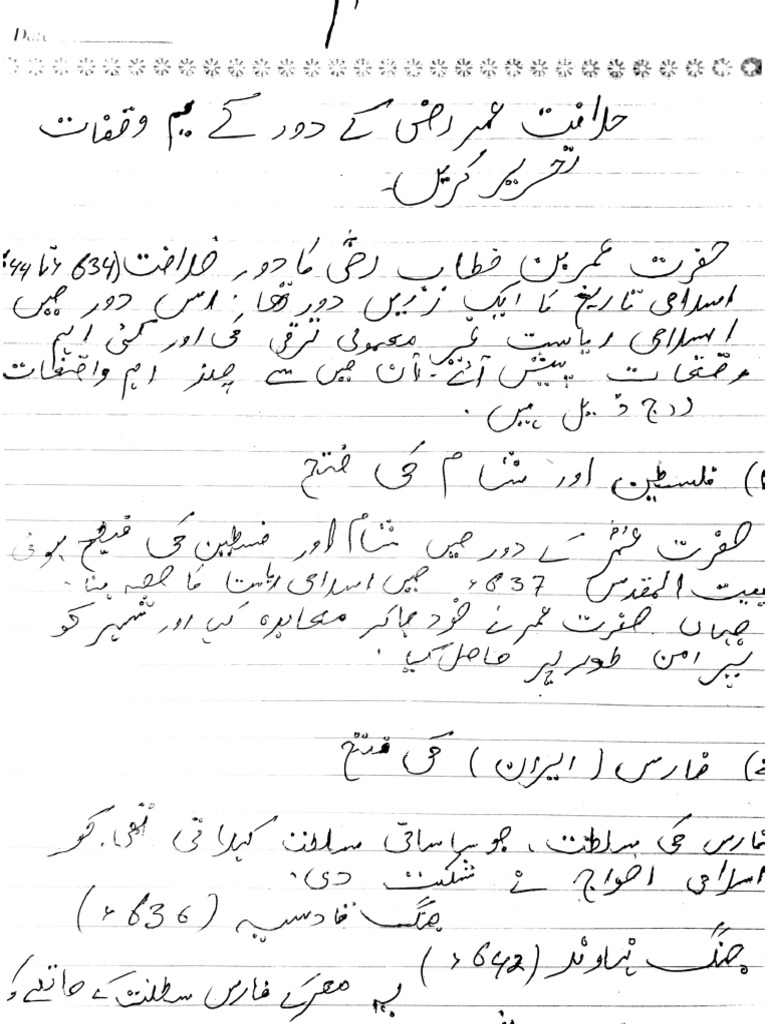 Date
خلافت عمر رضی کے دور کے اہم وقفات
تحریر کریں۔
حضرت عمر بن خطاب رضی کا دور خلافت (634ء تا 644ء
اسلامی تاریخ کا ایک زریں دور تھا۔ اس دور میں
اسلامی ریاست غیر معمولی ترقی کی اور کئی اہم
وقعات پیش آئے۔ ان میں سے چند اہم واقعات
درج ذیل ہیں۔
1) فلسطین اور شام کی فتح
حضرت عمرؓ کے دور میں شام اور فسطین کی فتح ہوئی
بیت المقدس 637ء میں اسلامی ریاست کا حصہ بنا۔
جہاں حضرت عمر نے خود جاکر معاہدہ کیا اور شہر کو
پر امن طور پر حاصل کیا۔
2) فارس (ایران) کی فتح
فارس کی سلطنت، جو ساسانی سلطنت کہلاتی تھی۔ کو
اسلامی افواج نے شکست دی۔
جنگ قادسیہ (636ء)
جنگ نہاوند (642ء)
یہ معرکے فارس سلطنت کے خاتمے